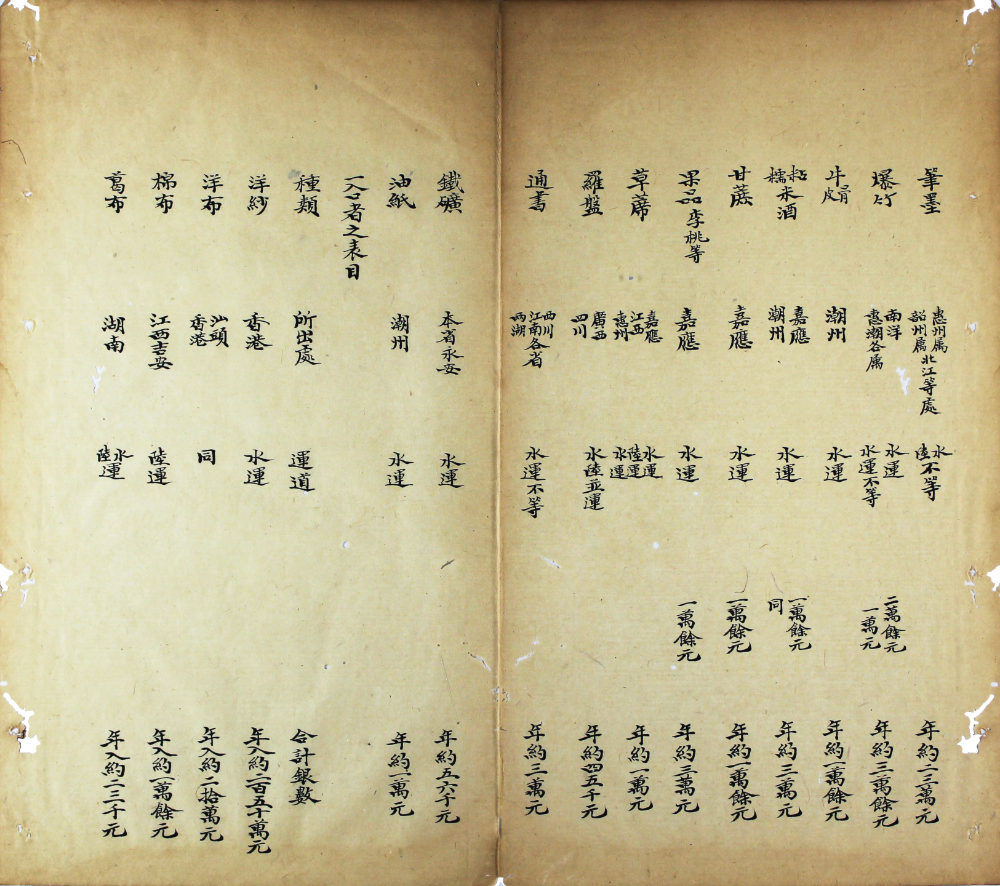 筆墨　惠州屬韶州屬北江等處　水陸不等　年約一二三萬元
爆竹　南洋惠潮各屬　水運水運不等　二萬餘元一萬元　年約三萬餘元
牛皮骨　潮州　水運　年約一萬餘元
糯米酒　嘉應潮州　水運　一萬餘元同　年約三萬元
甘蔗　嘉應　水運　一萬餘元　年約一萬餘元
果品李桃等　嘉應　水運　一萬餘元　年約二萬元
草蓆　嘉應江西惠州　水運陸運水運　年約一萬元
羅盤　廣西四川　水陸並運　年約四五千元
通書　四川江南各省兩湖　水運不等　年約三萬元
鐵礦　本省永安　水運　年約五六千元
油紙　潮州　水運　年約一萬元
一入口者之表目
種類　所出處　運道　合計銀數
洋紗　香港　水運　年入約二百五十萬元
洋布　汕頭香港　同　年入約二拾萬元
棉布　江西吉安　陸運　年入約一萬餘元
葛布　湖南　水陸運　年入約二三千元